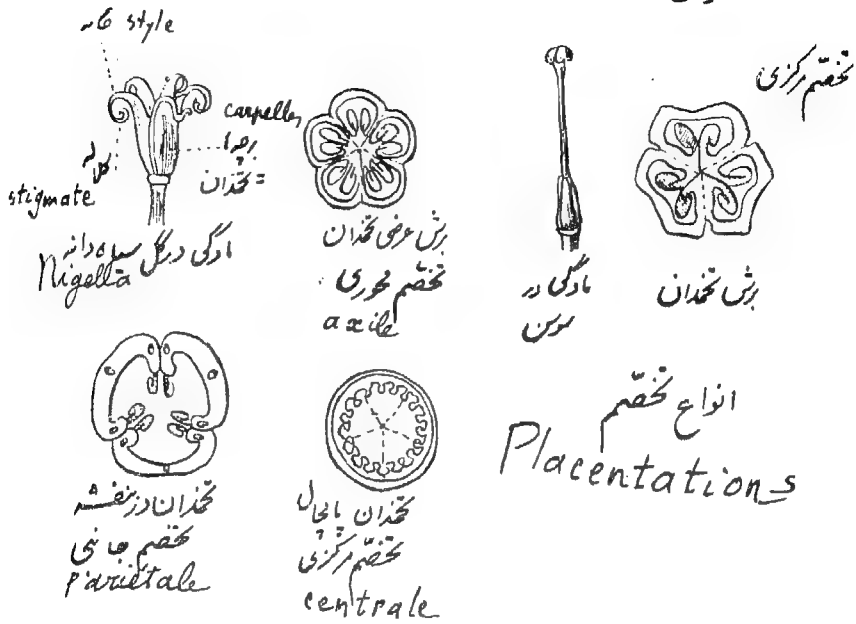 خامه style
carpelles
برچه ها
= تخمدان
کلاله
stigmate
مادگی در گل سیاه دانه
Nigella
برش عرضی تخمدان
تخصّم محوری
axile
مادگی در
سوسن
تخصّم مرکزی
برش تخمدان
تخمدان در بنفشه
تخصّم جانبی
pariétale
تخمدان پامچال
تخصّم مرکزی
centrale
انواع تخصّم
Placentations